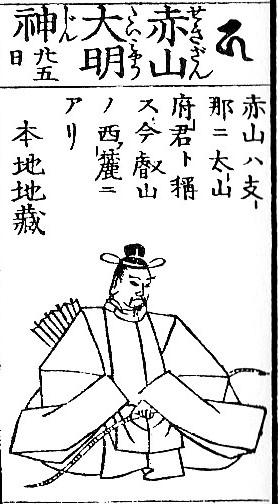 赤山
せきざん
大明
神
じん
廿五
日
赤山ハ支
那ニ太山
府君ト稱
ス今叡山
ノ西麓ニ
アリ
本地地藏